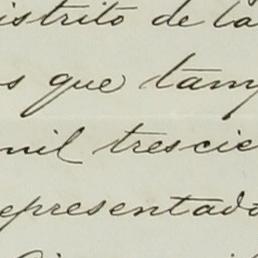 istrito de la
s que tamp
mil trescie
representado